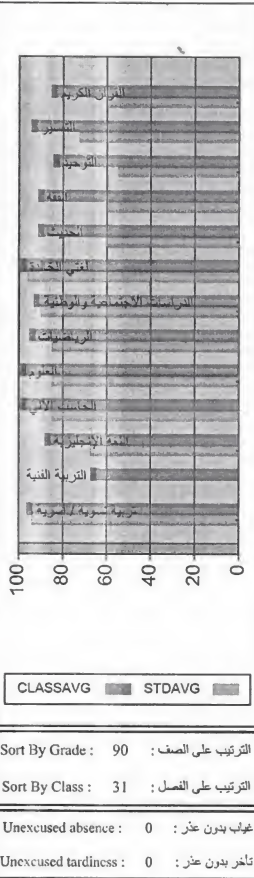 القرآن الكريم
التفسير
التوحيد
الفقه
الحديث
لغتي الخالدة
الدراسات الاجتماعية والوطنية
الرياضيات
العلوم
الحاسب الآلي
اللغة الإنجليزية
التربية الفنية
تربية نسوية / أسرية
100 80 60 40 20 0
CLASSAVG STDAVG
Sort By Grade : 90 الترتيب على الصف :
Sort By Class : 31 الترتيب على الفصل :
Unexcused absence : 0 غياب بدون عذر :
Unexcused tardiness : 0 تأخر بدون عذر :